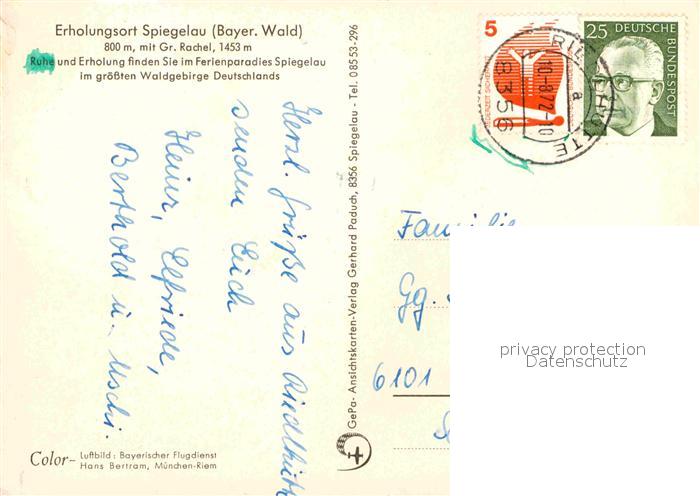 Erholungsort Spiegelau (Bayer. Wald)
800 m, mit Gr. Rachel, 1453 m
Ruhe und Erholung finden Sie im Ferienparadies Spiegelau
im größten Waldgebirge Deutschlands
Herzl. Grüße aus Riedlhütte
senden Euch
Heinz, Elfriede,
Berthold u. Uschi.
Color- Luftbild: Bayerischer Flugdienst
Hans Bertram, München-Riem
GePa- Ansichtskarten-Verlag Gerhard Paduch, 8356 Spiegelau - Tel. 08553-296
5
25 DEUTSCHE
BUNDESPOST
-10.-8.72-10
a
8356
Familie
Gg.
6101
privacy protection
Datenschutz